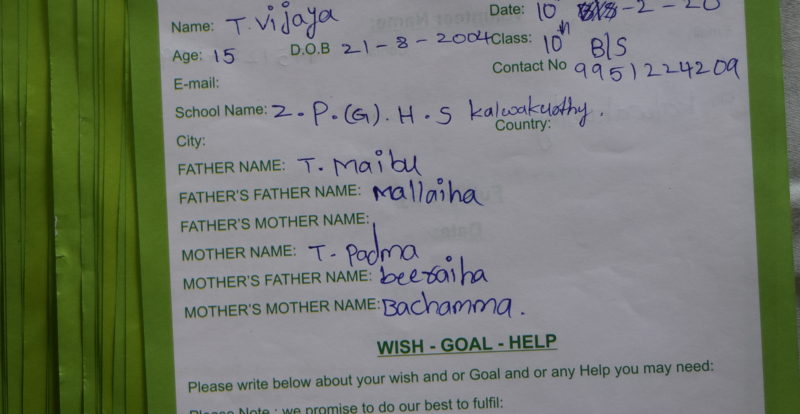 Name: T. vijaya Date: 10 -2-20
Age: 15 D.O.B 21-8-2004 Class: 10th B/S
E-mail: Contact No 9951224209
School Name: Z.P.(G).H.S kalwakurthy.
City: Country:
FATHER NAME: T. maibu
FATHER'S FATHER NAME: mallaiha
FATHER'S MOTHER NAME:
MOTHER NAME: T. padma
MOTHER'S FATHER NAME: beeraiha
MOTHER'S MOTHER NAME: Bachamma.
WISH - GOAL - HELP
Please write below about your wish and or Goal and or any Help you may need:
Please Note : we promise to do our best to fulfil: